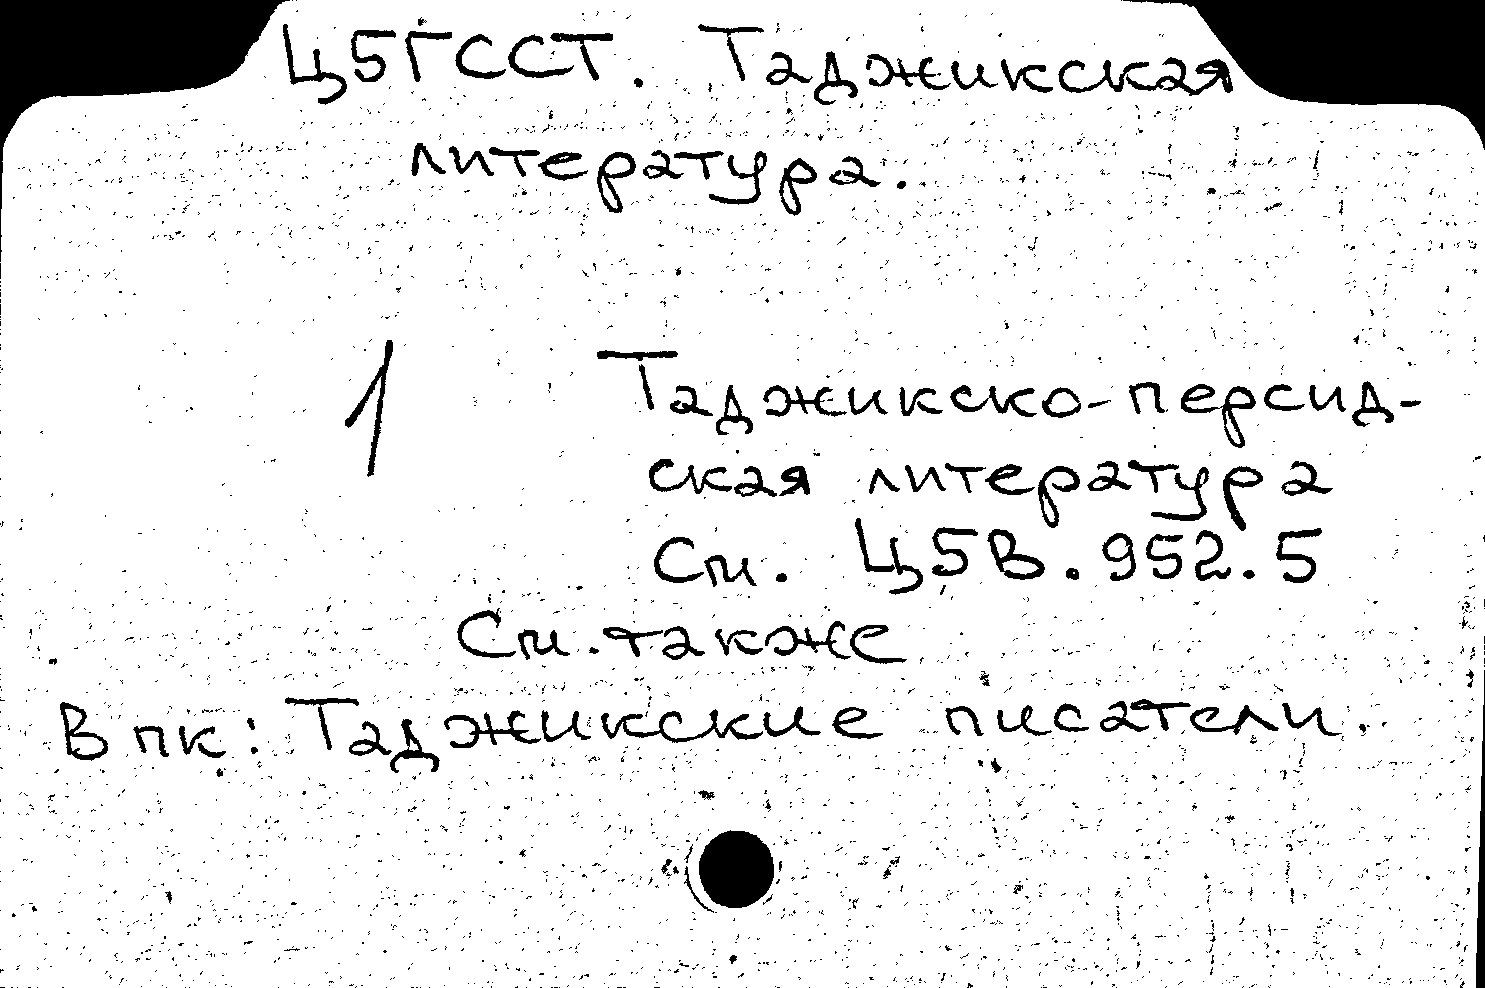 Ц5ГССТ. Таджикская
литература.
1 Таджикско-персид-
ская литература
См. Ц5В.952.5
См. также
В пк: Таджикские писатели.